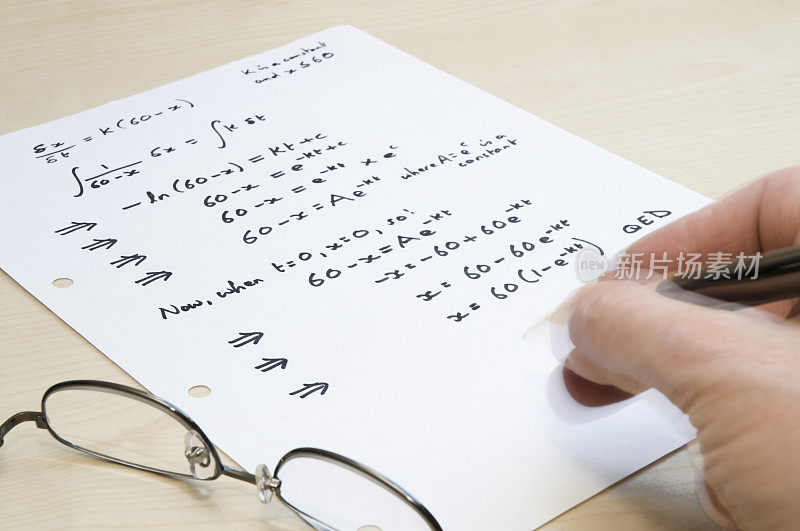 K is a constant
and x ≤ 60
δx/δt = K(60-x)
∫ 1/60-x δx = ∫K δt
-ln(60-x) = Kt + c
⇒ 60-x = e^-Kt+c
⇒ 60-x = e^-Kt × e^c
⇒ 60-x = Ae^-Kt where A=e^c is a constant
Now, when t=0, x=0, so:
60-x = Ae^-Kt
⇒ -x = -60+60e^-Kt
⇒ x = 60-60e^-Kt
⇒ x = 60(1-e^-Kt) QED
new 新图网